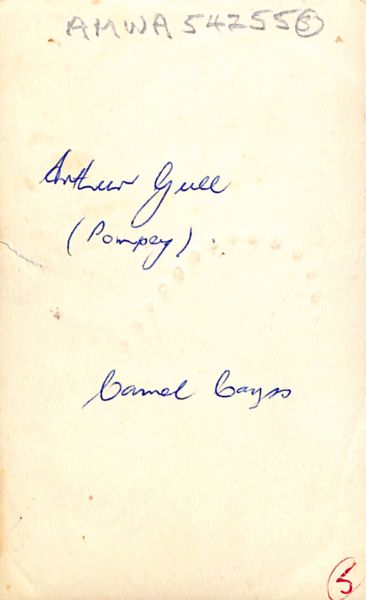 AMWA 54255 5
Arthur Gull
(Pompey).
Camel Corps
5